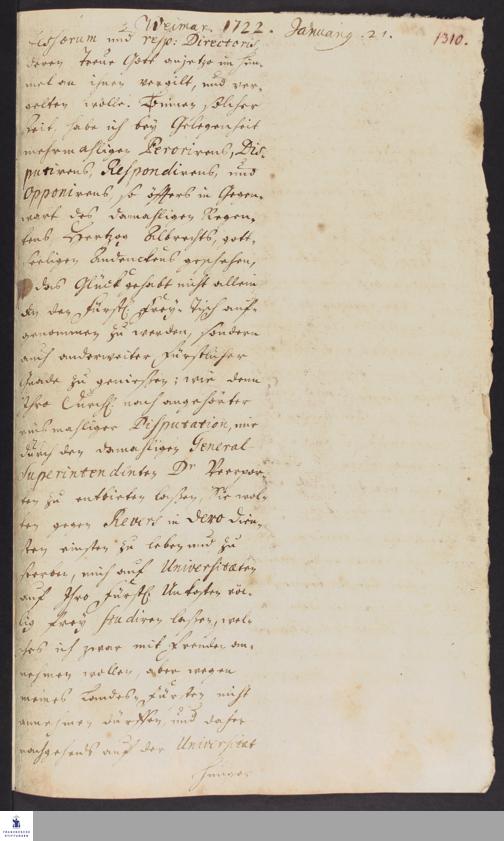 Weimar. 1722. Januarÿ. 21.
1310.
und resp: Directoris
deren treue Gott anjetzo im Him,
mel an ihnen vergilt, und ver,
gelten wolle. Binnen solcher
Zeit, habe ich bey Gelegenheit
mehrmahligen Perorirens, Dis,
putirens, Respondirens, und
Opponirens, so öffters in Gegen,
wart des damahligen Regen,
tens Hertzog Albrechts, gott,
seeligen Andenckens geschehen,
das Glück gehabt nicht allein
an den Fürstl. Frey-Tisch auf,
genommen zu werden, sondern
auch anderweiter Fürstlicher
Gnade zu geniessen; wie denn
Ihro Durchl. nach angehörter
mahliger Disputation, mir
durch den damahligen General
Superintendenten Dr
ten zu entbieten lassen, Sie wol,
ten gegen Revers in Dero Dien,
sten einsten zu leben und zu
sterben, mich auf Universitæten
auf Ihro Fürstl. Unkosten völ,
lig frey studiren lassen, wel,
ches ich zwar mit Freuden an,
nehmen wollen, aber wegen
meines Landes-Fürsten nicht
annehmen dürffen, und daher
nachgehends auf der Universitæt
FRANCKESCHE
STIFTUNGEN